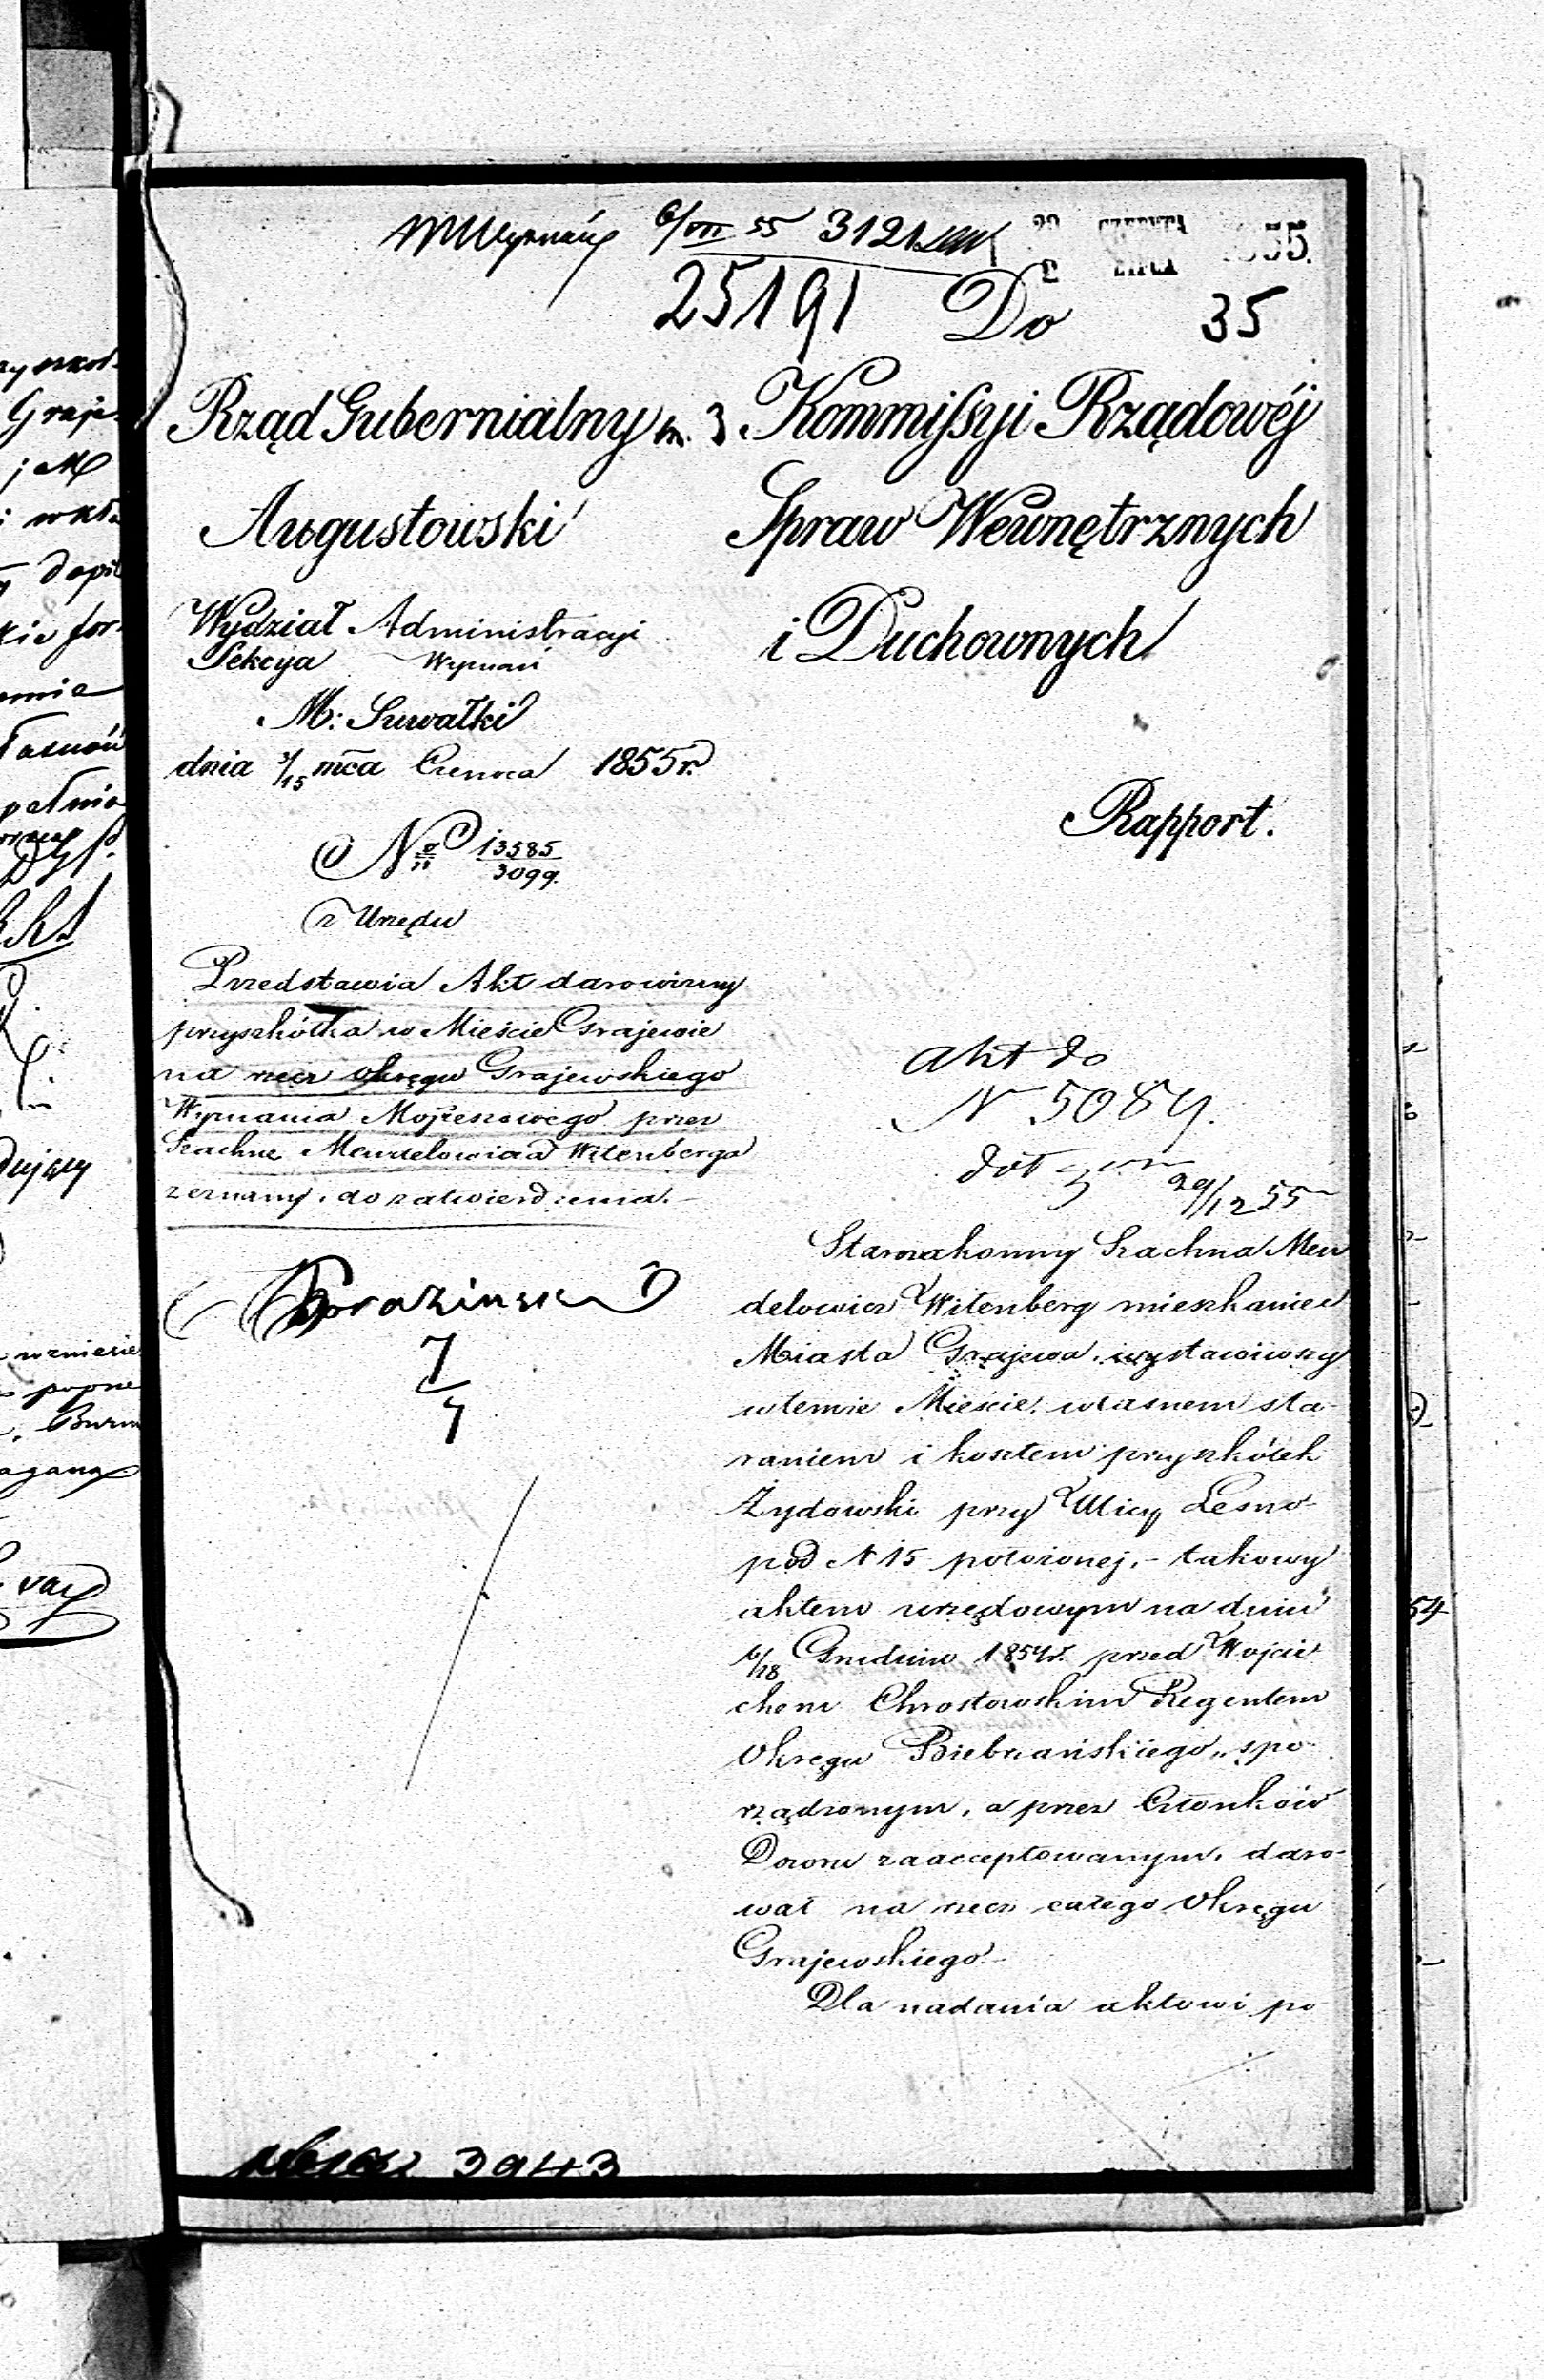 6/VII 55 3121
CZERWCA
LIPCA 1855.
25191
Do 35
Rząd Gubernialny
Augustowski
Wydział Administracyi
Sekcya Wyznań
M: Suwałki
dnia 3/15 mca Czerwca 1855 r.
No 13585
3099.
z Urzędu
Przedstawia Akt darowizny
przyszkółka w Mieście Grajewie
na rzecz Okręgu Grajewskiego
Wyznania Mojżeszowego przez
Szachnę Mendelowicza Witenberga
zeznany, do zatwierdzenia.
Kommissyi Rządowéj
Spraw Wewnętrznych
i Duchownych
Rapport.
Akt do
N 5084.
29/12 55
Starozakonny Szachna Men
delowicz Witenberg mieszkaniec
Miasta Grajewa, wystawiwszy
w temże Mieście, własnem sta-
raniem i kosztem przyszkółek
Żydowski przy Ulicy Leśno
pod N 15 położonej, - takowy
aktem urzędowym na dniu
6/18 Grudnia 1854 r. przed Wojcie
chem Chrostowskim Regentem
Okręgu Biebrzańskiego, spo-
rządzonym, a przez Członków
Dozoru zaacceptowanym, daro-
wał na rzecz całego Okręgu
Grajewskiego.-
Dla nadania aktowi po
3943